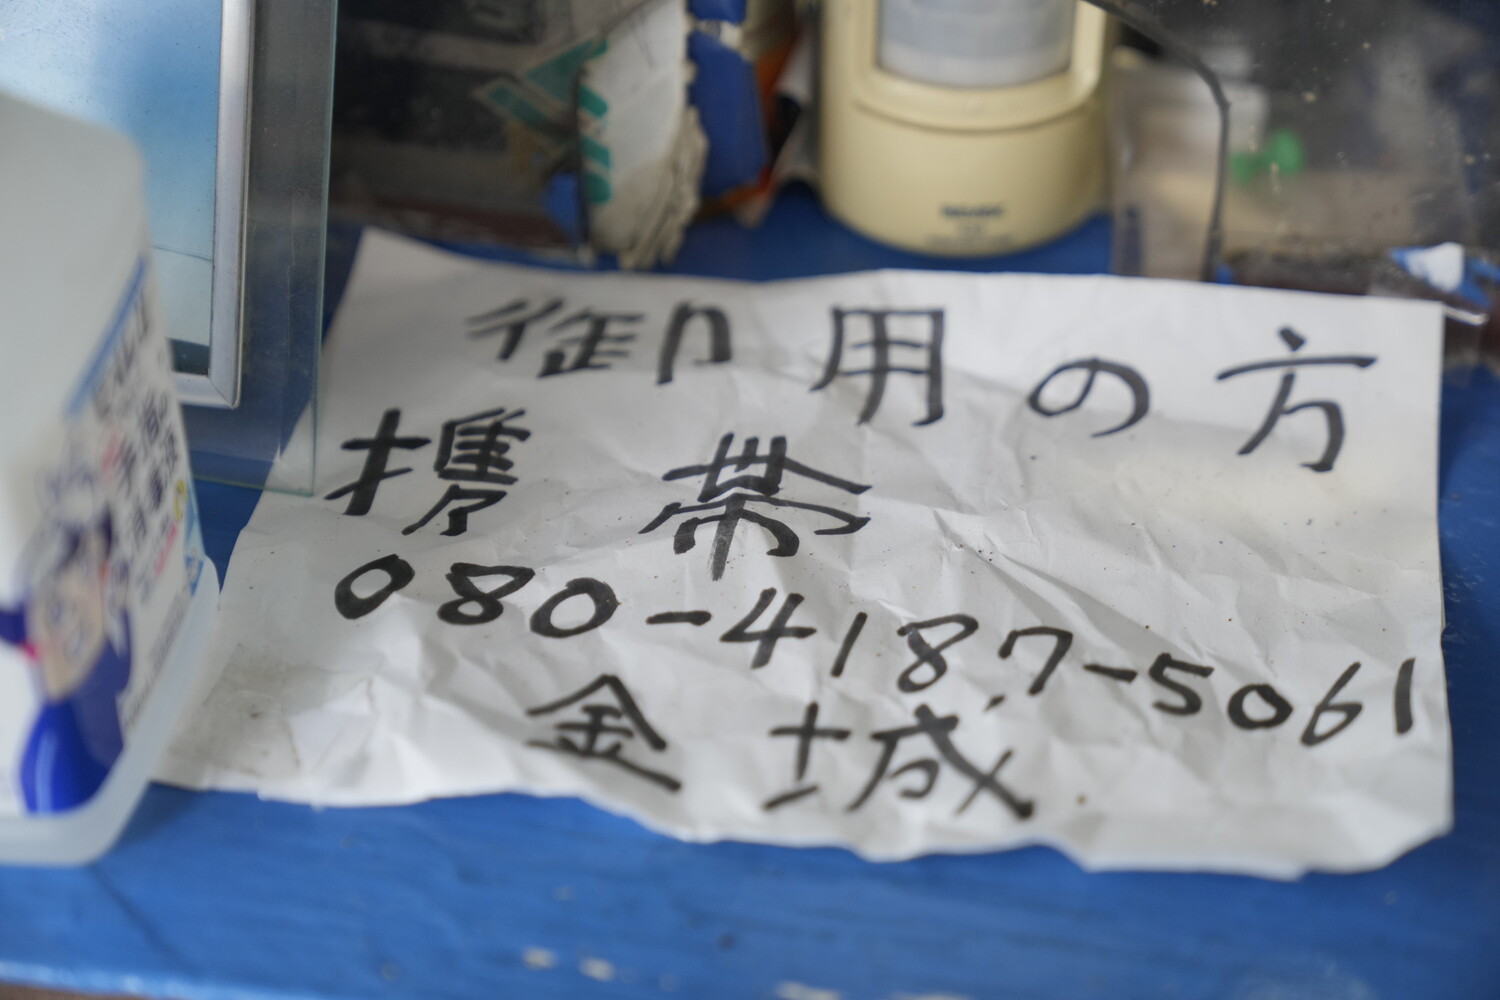 御用の方
携帯
080-4187-5061
金城